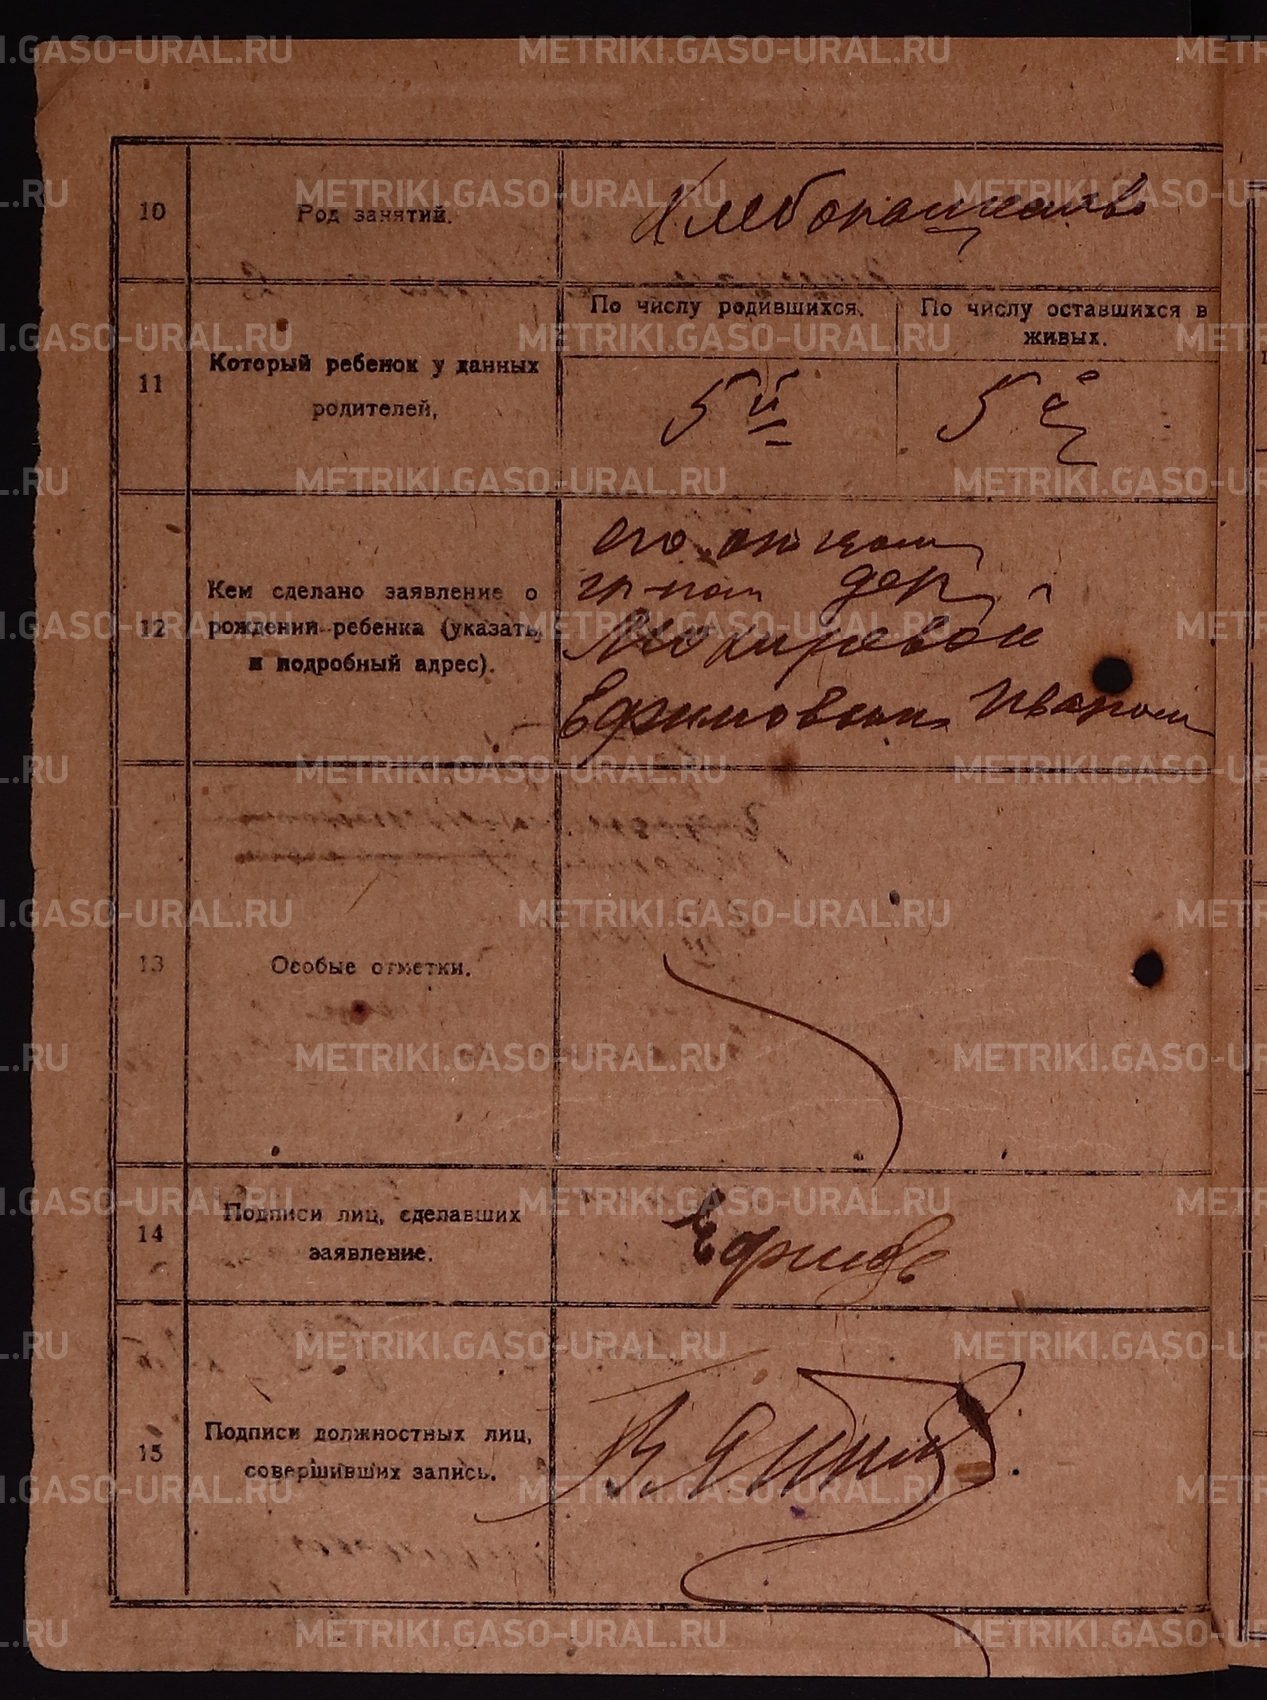 10
Род занятий.
Хлебопашество
11
Который ребенок у данных
родителей,
По числу родившихся.
По числу оставшихся в
живых.
5й
5й
12
Кем сделано заявление о
рождении ребенка (указать
и подробный адрес).
его отцом
гр-ном дер
Мокиревой
Ефимовым Иваном
13
Особые отметки.
14
Подписи лиц, сделавших
заявление.
Ефимов
15
Подписи должностных лиц,
совершивших запись.
METRIKI.GASO-URAL.RU